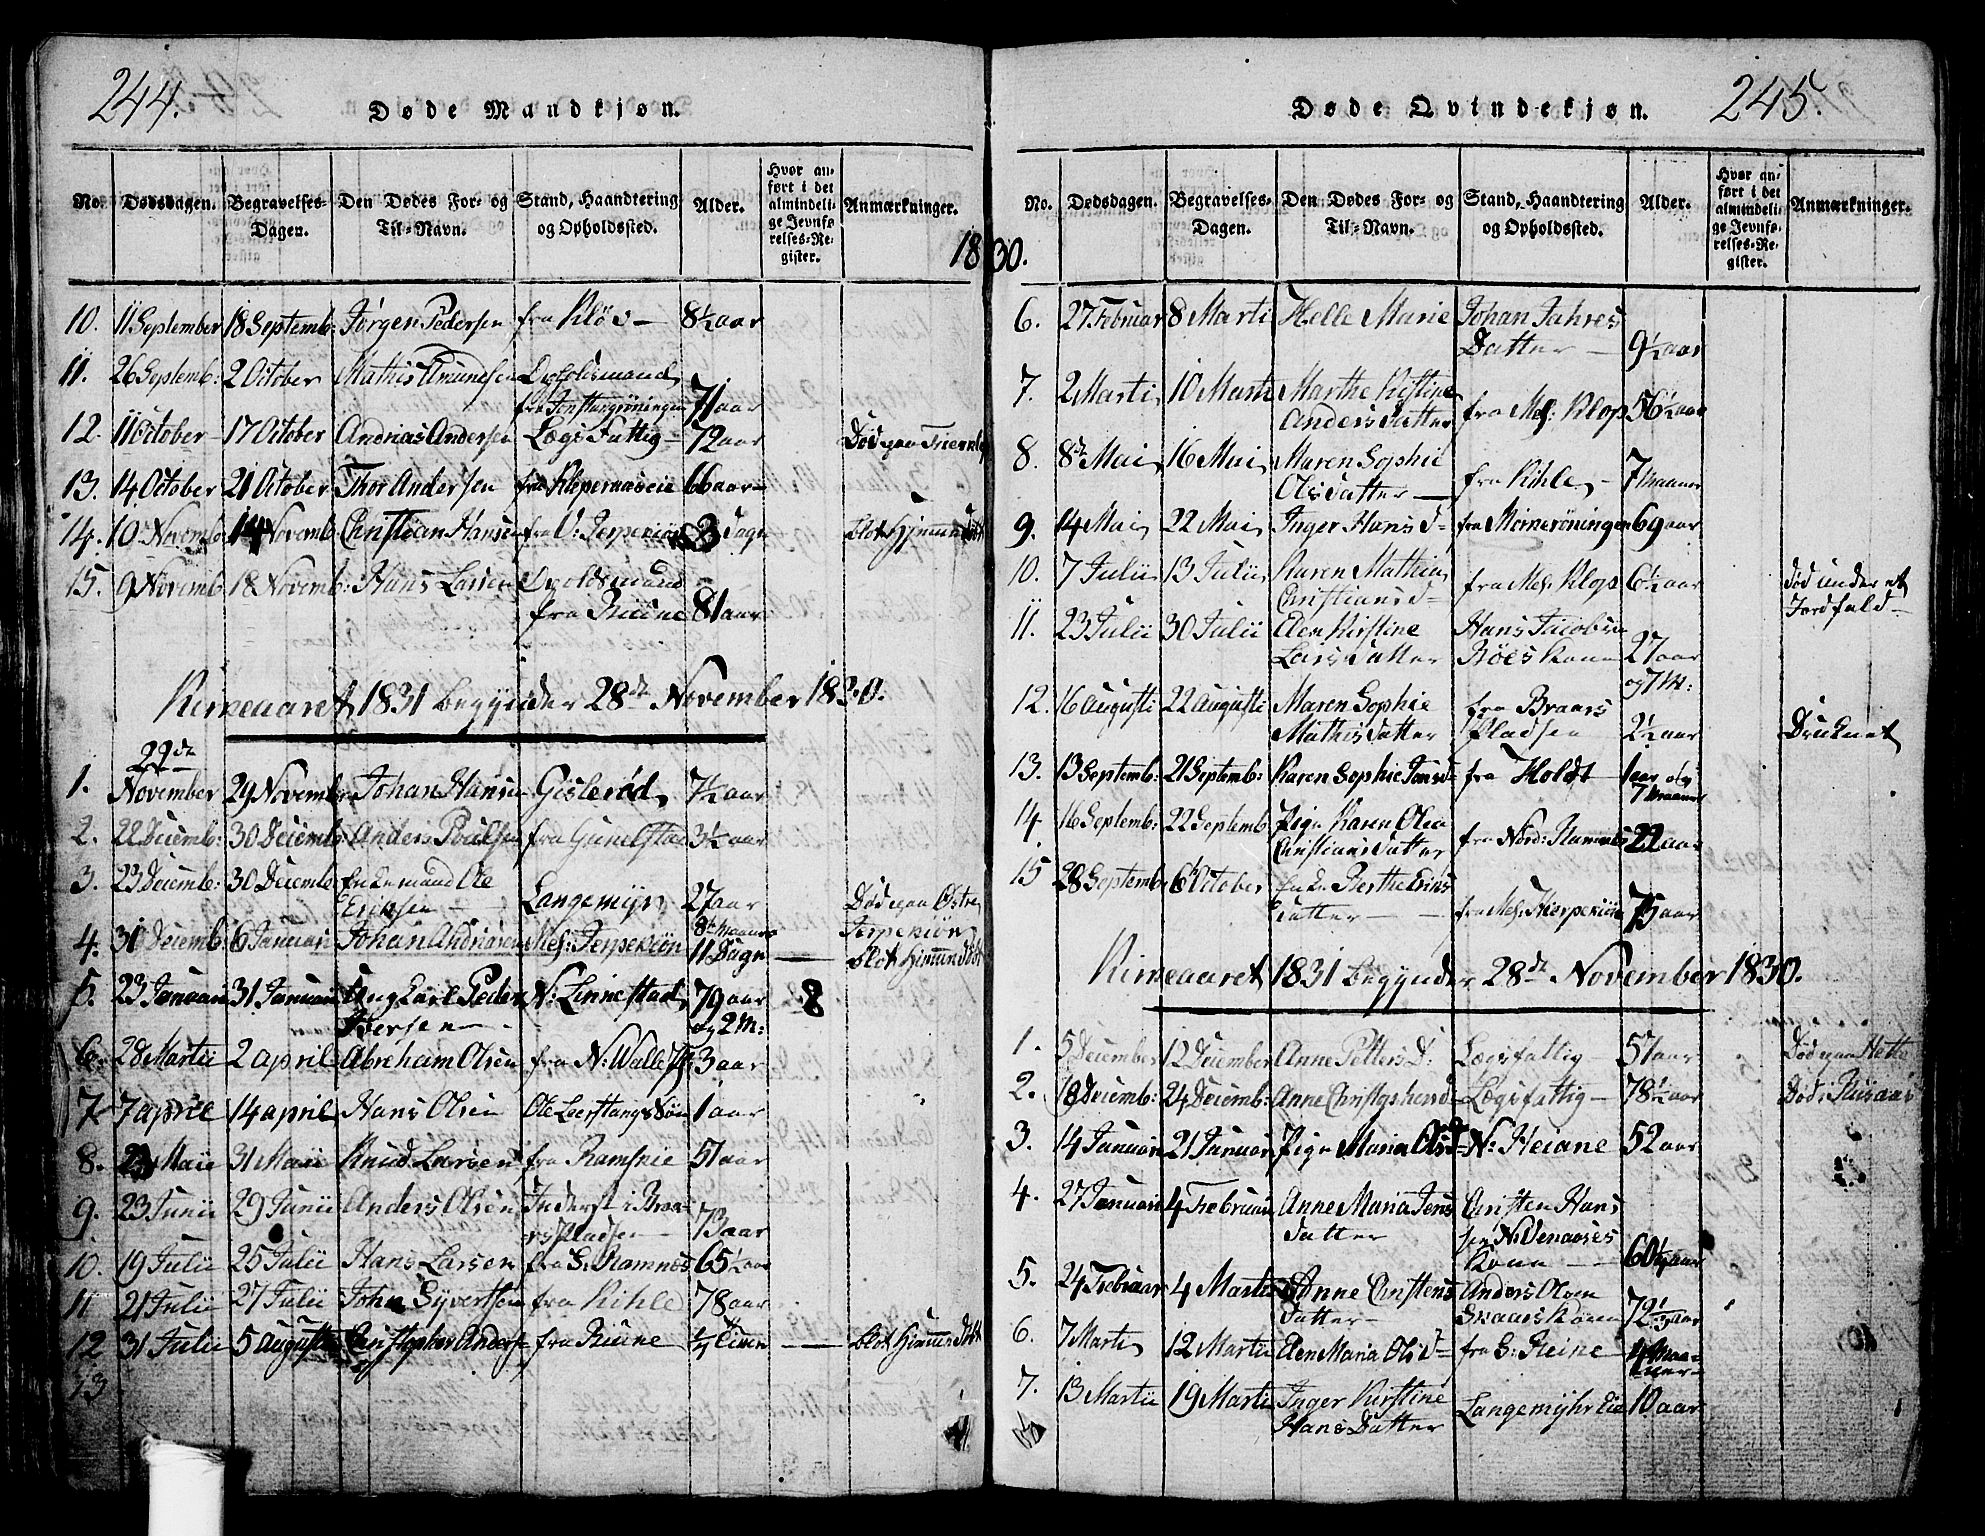 244.
Døde Mandkjøn.
No. Dødsdagen. Begravelses-Dagen. Den Dødes For- og Til-Navn. Stand, Haandtering og Opholdssted. Alder. Hvor anført i det almindelige Jevnførelses-Register. Anmærkninger.
1830.
10. 11 September 18 Septemb: Jørgen Pedersen fra Kløv 8½ aar
11. 26 Septemb: 2 October Mathis Amundsen Opholdsmand 71 aar
12. 11 October 17 October Andrias Andersen Lægs Fattig 72 aar Død paa
13. 14 October 21 October Thor Andersen fra 66 aar
14. 10 Novemb 14 Novemb Christian Hansen fra 3 Dage blot hjemme døbt
15. 9 Novemb 18 Novemb: Hans Larsen Opholdsmand
fra Biüne 81 aar
Kirkeaaret 1831 begynder 28de November 1830.
1. 22de November 29 Novemb Johan Hansen Gislerød 7½ aar
2. 22 Decemb: 30 Decemb: Anders Poulsen fra Gunelstad 3½ aar
3. 23 Decemb: 30 Decemb Enkemand Ole
Eriksen Langemyr 27 aar Død paa Østre
4. 31 Decemb: 6 Januari Johan Andriasen Mel: Jerpekiøn 8 Maaner
11 Dage blot hjemme døbt
5. 23 Januari 31 Januari Ung Carl Peder N: Linnestad 79 aar 8
Iversen og 2 M:
6. 28 Martii 2 april Abraham Olsen fra N: Wallestad 3 aar
7. 7 april 14 april Hans Olsen Ole Leerstangs Søn 1 aar
8. Maii 31 Maii Knud Larsen fra Ramsrie 51 aar
9. 23 Junii 29 Junii Anders Olsen Inderst i Braars Pladsen 73 aar
10. 19 Julii 25 Julii Hans Larsen fra S: Ramnes 65½ aar
11 21 Julii 27 Julii John Syvertsen fra Kihle 78 aar
12 31 Julii 5 Augusti Christopher Anders fra Biüne ½ Time blot hjemme døbt
13
Døde Qvindekjøn. 245.
No. Dødsdagen. Begravelses-Dagen. Den Dødes For- og Til-Navn. Stand, Haandtering og Opholdssted. Alder. Hvor anført i det almindelige Jevnførelses-Register. Anmærkninger.
6. 27 Februar 8 Marti Helle Marie Johan Jahres
Datter 9½ aar
7. 2 Marti 10 Marti Marthe Kistine
Anders Datter fra Mel: Klop 56½ aar
8. 8de Mai 16 Mai Maren Sophie
Olsdatter fra Kihle 7 Maaner
9. 14 Mai 22 Mai Inger Hans D= fra Moinerøningen 69 aar
10. 7 Julii 13 Julii Karen Mathia
Christians D= fra Mel: Klop 6½ aar Død under et
Jordfald
11. 23 Julii 30 Julii Elen Kirstine
Lars Datter Hans Jacobsen
Röes Kone 27 aar
og 7 M:
12. 16 Augusti 22 Augusti Maren Sophie
Mathis Datter fra Braars
Pladsen 2½ aar Druknet
13. 13 Septemb: 21 Septemb: Karen Sophie Jans D= fra Holdt 1 aar og
7 Maaner
14 16 Septemb: 22 Septemb Pige Karen Olea
Christians Datter fra Nord: Ramnes 22 aar
15 28 Septemb 6 October Enke Berthe Eriks
Datter fra Mel: Jerpekiøn 75 aar
Kirkeaaret 1831 begynder 28de November 1830.
1. 5 December 12 December Anne Petters D: Lægsfattig 57 aar Død paa
2. 18 Decemb: 24 Decemb: Anne Christophers D= Lægsfattig 78½ aar Død i
3. 14 Januari 21 Januari Pige Maria Ols D= N: Heiane 52 aar
4. 27 Januari 4 Februari Anne Maria Jens
Datter Christen Hans
sen N: Denaases
Kone 60½ aar
5. 24 Februar 4 Martii Anne Christens
Datter Anders Olsen
Skaars Kone 72½ aar
6. 7 Marti 12 Martii Elen Maria Ols D= fra S: Heine 4 Maaner
7. 13 Martii 19 Martii Inger Kirstine
Hans Datter Langemyhr Eie 10 aar